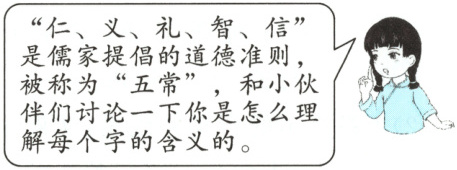 “仁、义、礼、智、信”
是儒家提倡的道德准则，
被称为“五常”，和小伙
伴们讨论一下你是怎么理
解每个字的含义的。